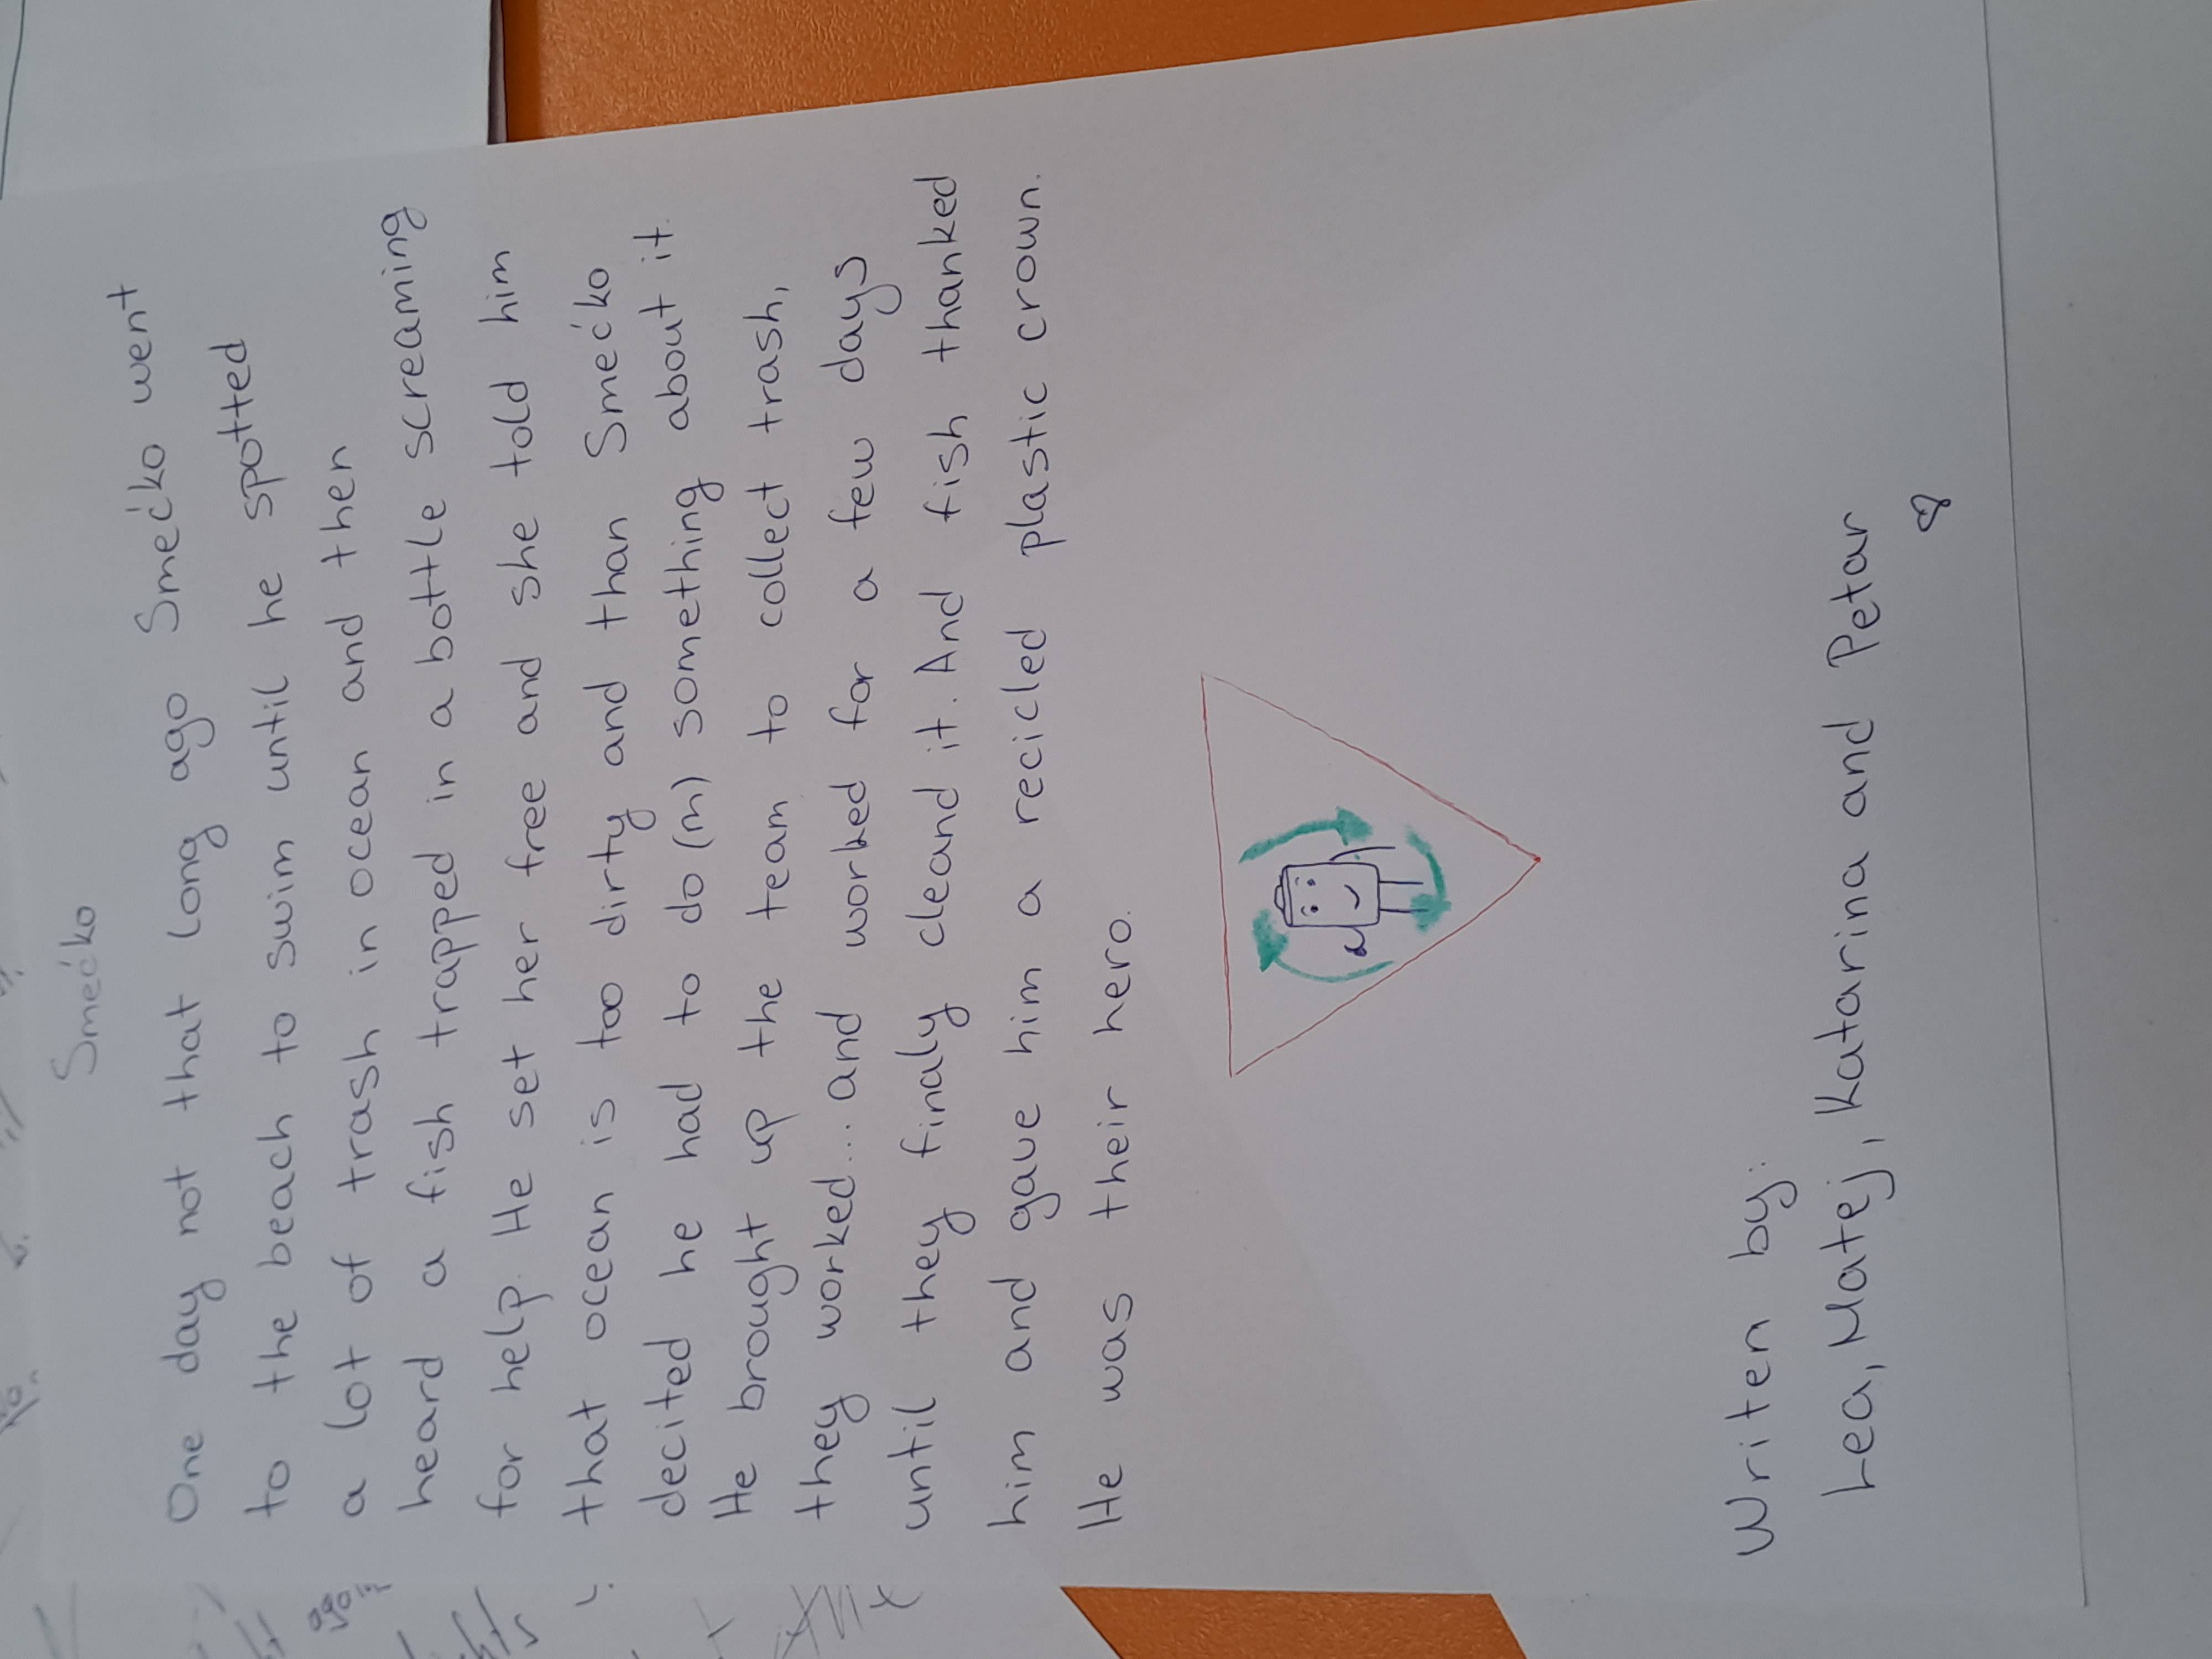 Smećko
One day not that long ago Smećko went
to the beach to swim until he spotted
a lot of trash in ocean and then
heard a fish trapped in a bottle screaming
for help. He set her free and she told him
that ocean is too dirty and than Smećko
decited he had to do (m) something about it.
He brought up the team to collect trash,
they worked... and worked for a few days
until they finaly cleand it. And fish thanked
him and gave him a recicled plastic crown.
He was their hero.
Writen by:
Lea, Matej, Katarina and Petar
again